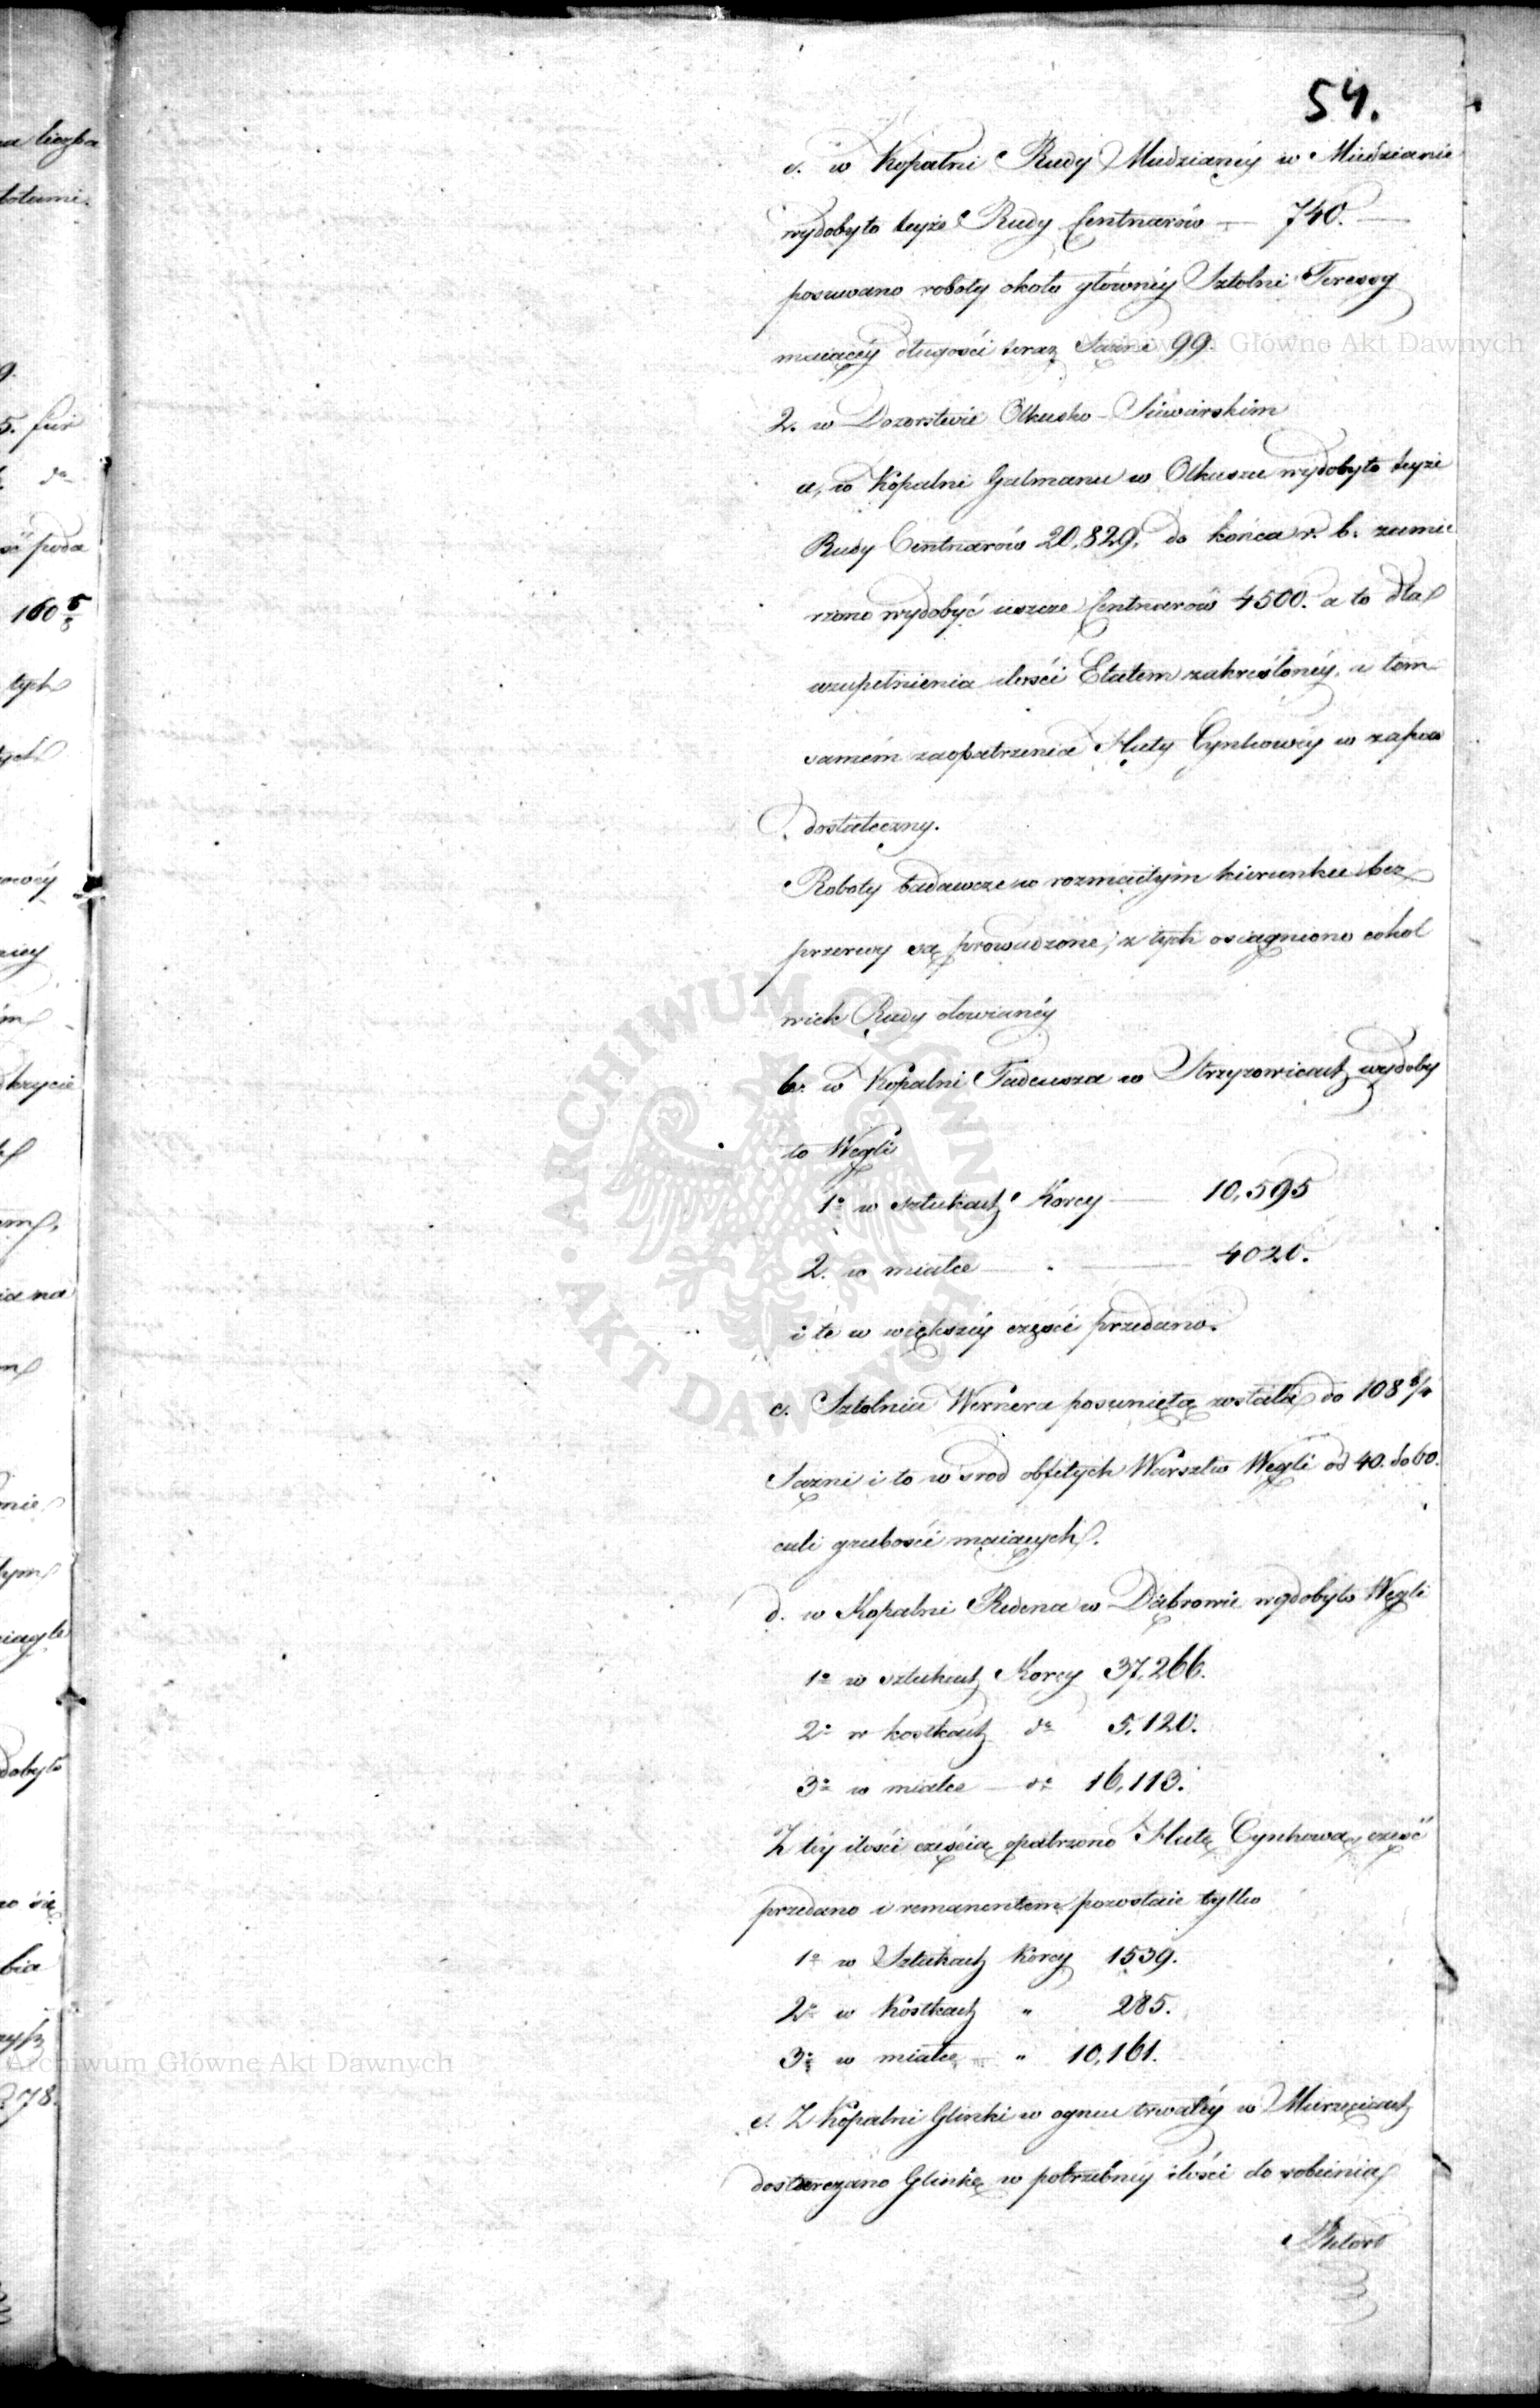 54.
e. w Kopalni Rudy Miedzianéy w Miedzianie
wydobyto teyże Rudy Centnarów — 740. —
posuwano roboty około głównéy Sztolni Teressy
maiącéy długości teraz Sążni 99.
2. w Dozorstwie Olkusko-Siewierskim
a, w Kopalni Galmanu w Olkuszu wydobyto teyże
Rudy Centnarów 20,829. do końca r. b. zamie
rzono wydobyć ieszcze Centnarów 4500. a to dla
uzupełnienia ilości Etatem zakreślonéy, a tem
samém zaopatrzenia Huty Cynkowéy w zapas
dostateczny.
Roboty badawcze w rozmaitym kierunku bez
przerwy są prowadzone; z tych osiągniono cokol
wiek Rudy ołowianéy
b. w Kopalni Tadeusza w Strzyzowicach wydoby
to Węgli
1º w sztukach Korcy — 10,595
2. w miałce — " — 4020.
i te w większéy części przedano.
c. Sztolnia Wernera posuniętą została do 108 6/8
Sążni i to w srod obfitych Warsztw Węgli od 40. do 60.
cali grubości maiących.
d. w Kopalni Redena w Dąbrowie wydobyto Węgli
1º w sztukach Korcy 37,266.
2º w kostkach dº 5,120.
3º w miałce — dº 16,113.
Z téy ilości częścią opatrzono Hutę Cynkową, część
przedano i remanentem pozostaie tylko
1º w Sztukach Korcy 1539.
2º w Kostkach " 285.
3º w miałce — " 10,161.
e. Z Kopalni Glinki w ogniu trwałéy w Mierzęcicach
dostarczano Glinkę w potrzebnéy ilości do robienia
Retort
na liczba
5. fur
dº
poda
160 5/8
tych
krycie
dobyto
78.
Archiwum Główne Akt Dawnych
ARCHIWUM GŁÓWNE AKT DAWNYCH
Archiwum Główne Akt Dawnych